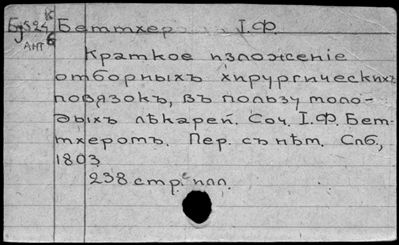 Беттхер I.Ф.
АНТ 6
Краткое изложенiе
отборныхъ хирургическихъ
повязокъ, въ пользу моло-
дыхъ лѣкарей. Соч. I.Ф. Бет-
тхеромъ. Пер. съ нѣм. Спб.,
1803
238 стр. илл.